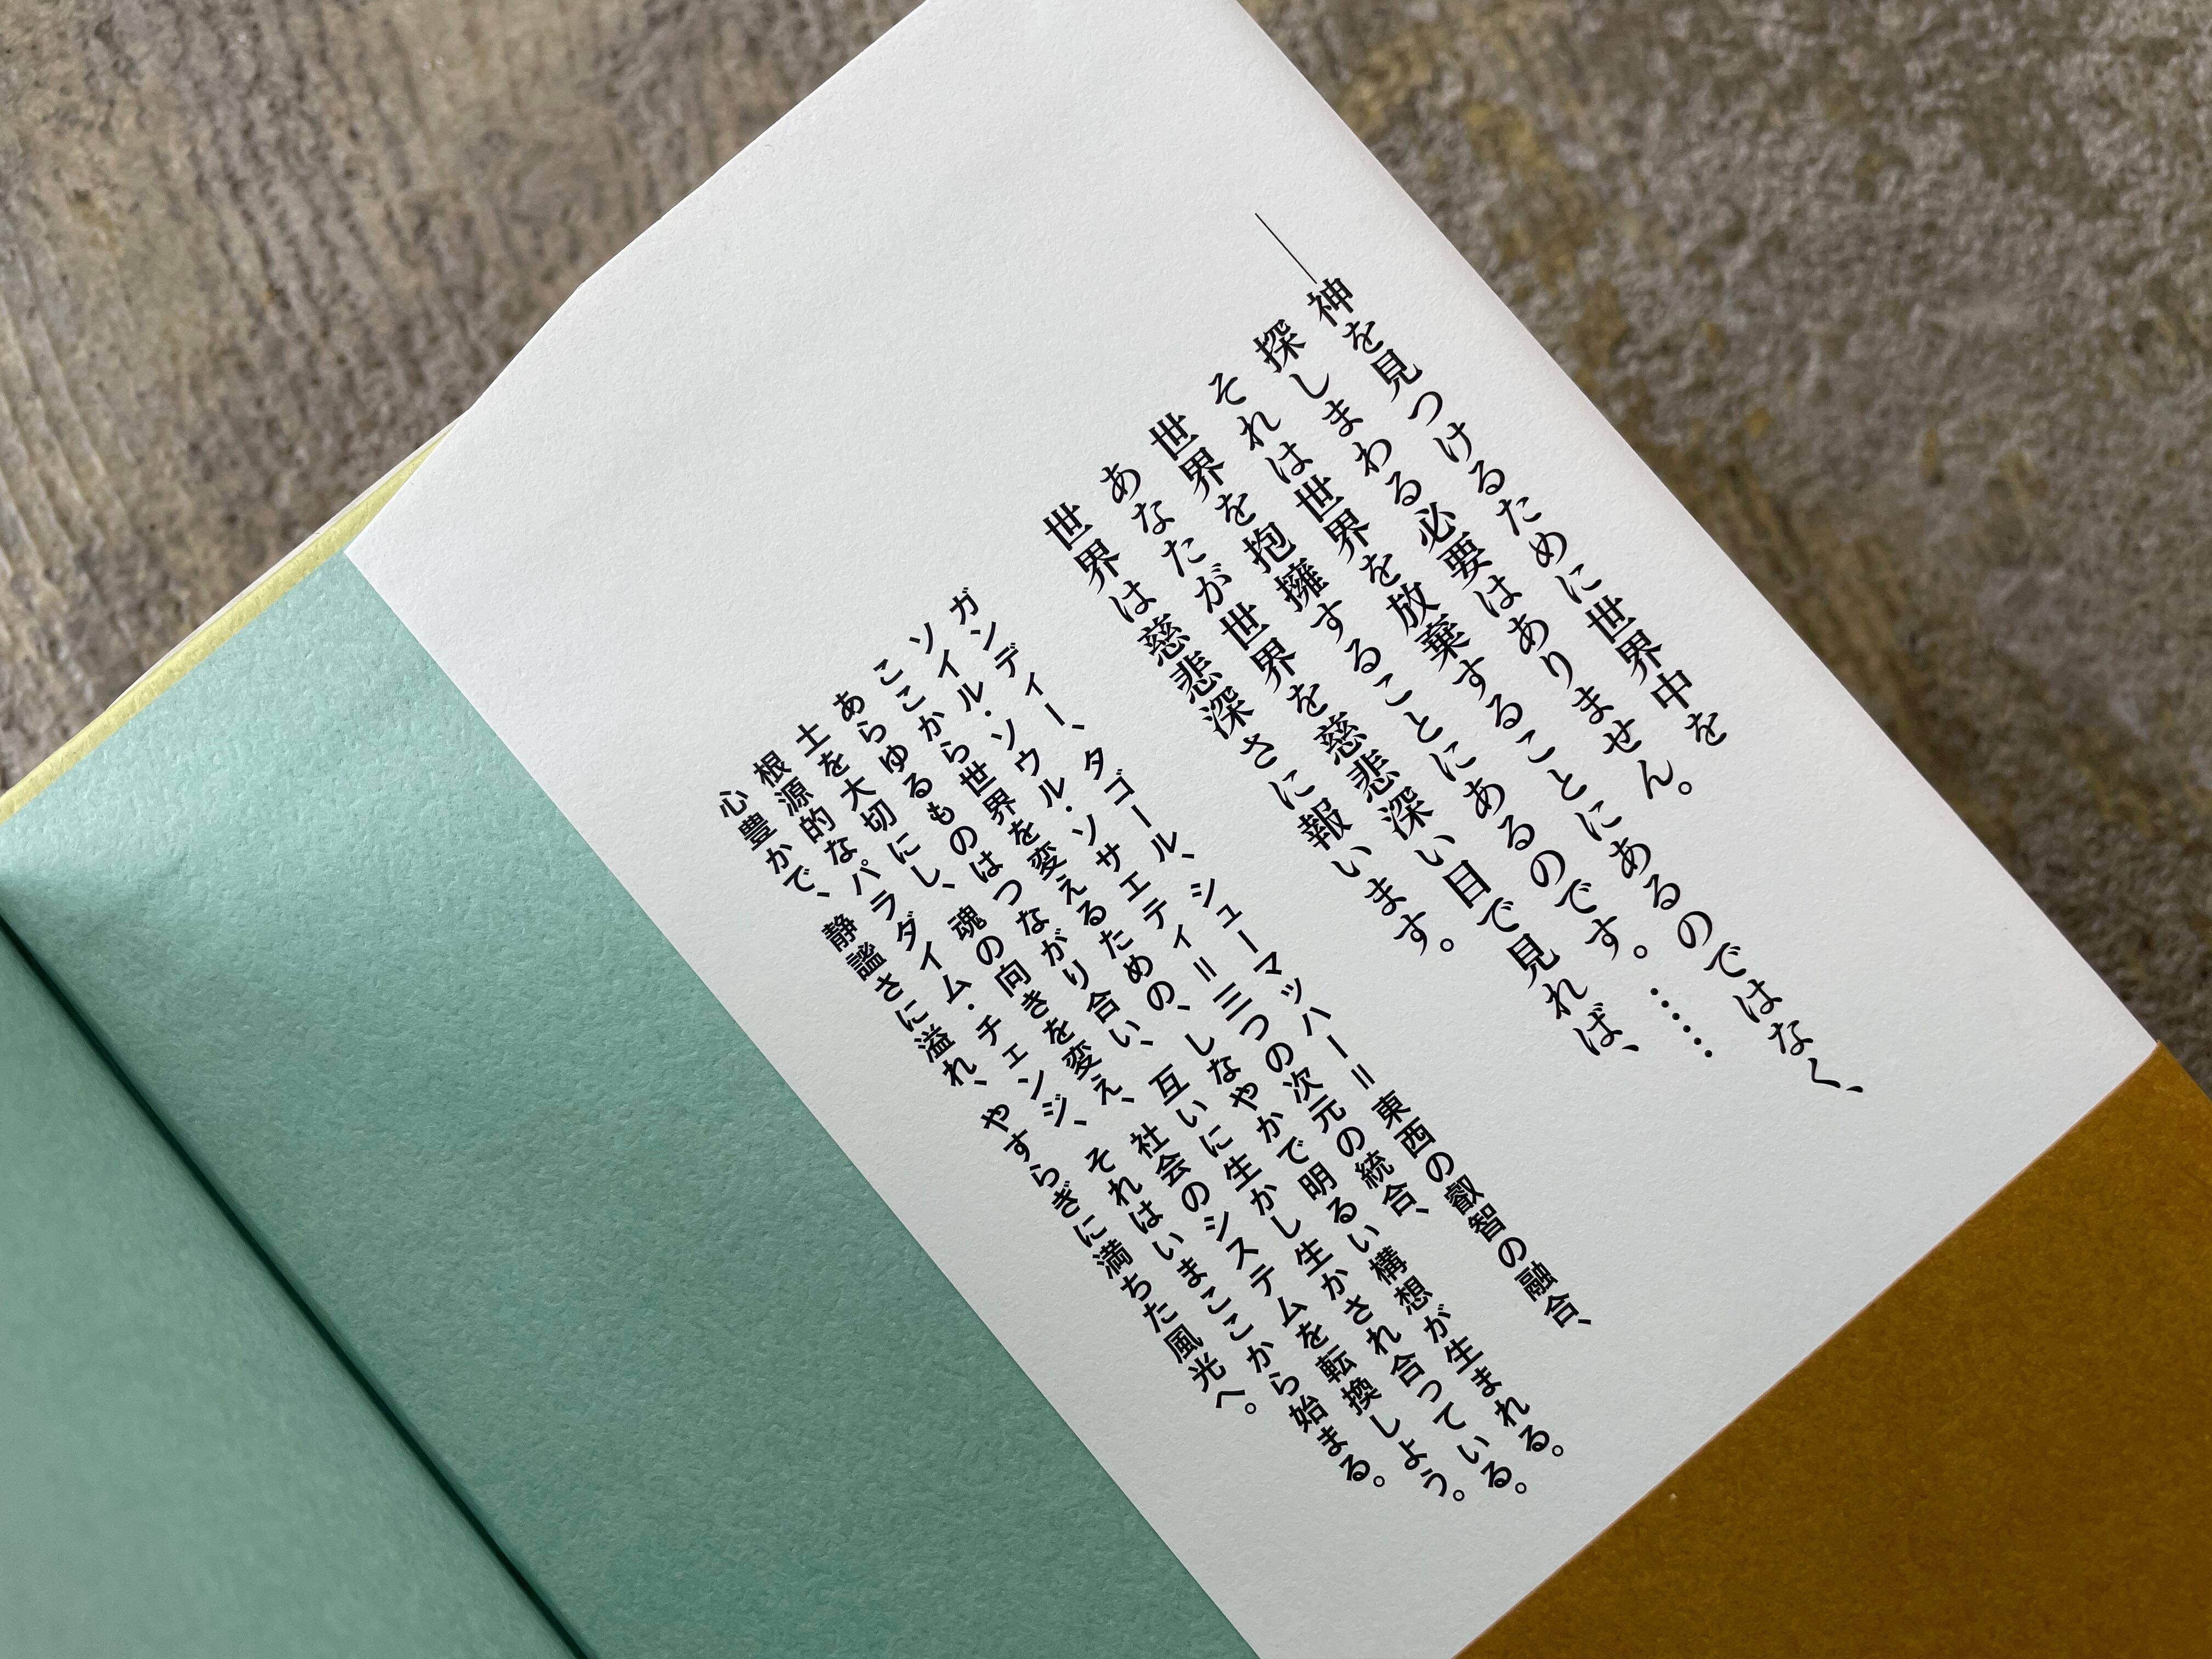 ──神を見つけるために世界中を
探しまわる必要はありません。
それは世界を放棄することにあるのではなく、
世界を抱擁することにあるのです。……
あなたが世界を慈悲深い目で見れば、
世界は慈悲深さに報います。
ガンディー、タゴール、シューマッハー＝東西の叡智の融合、
ソイル・ソウル・ソサエティ＝三つの次元の統合、
ここから世界を変えるための、しなやかで明るい構想が生まれる。
あらゆるものはつながり合い、互いに生かし生かされ合っている。
土を大切にし、魂の向きを変え、社会のシステムを転換しよう。
根源的なパラダイム・チェンジ、それはいまここから始まる。
心豊かで、静謐さに溢れ、やすらぎに満ちた風光へ。